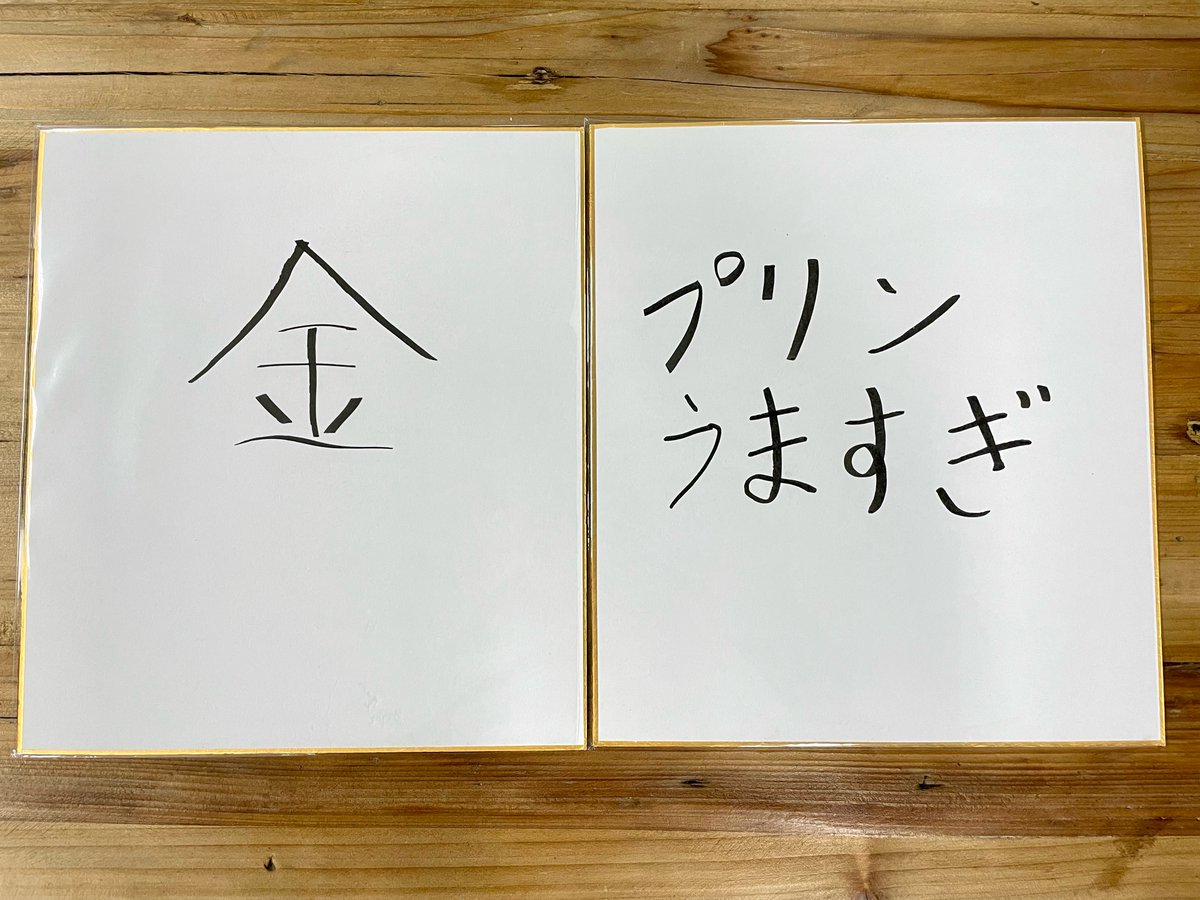 金
プリン
うますぎ